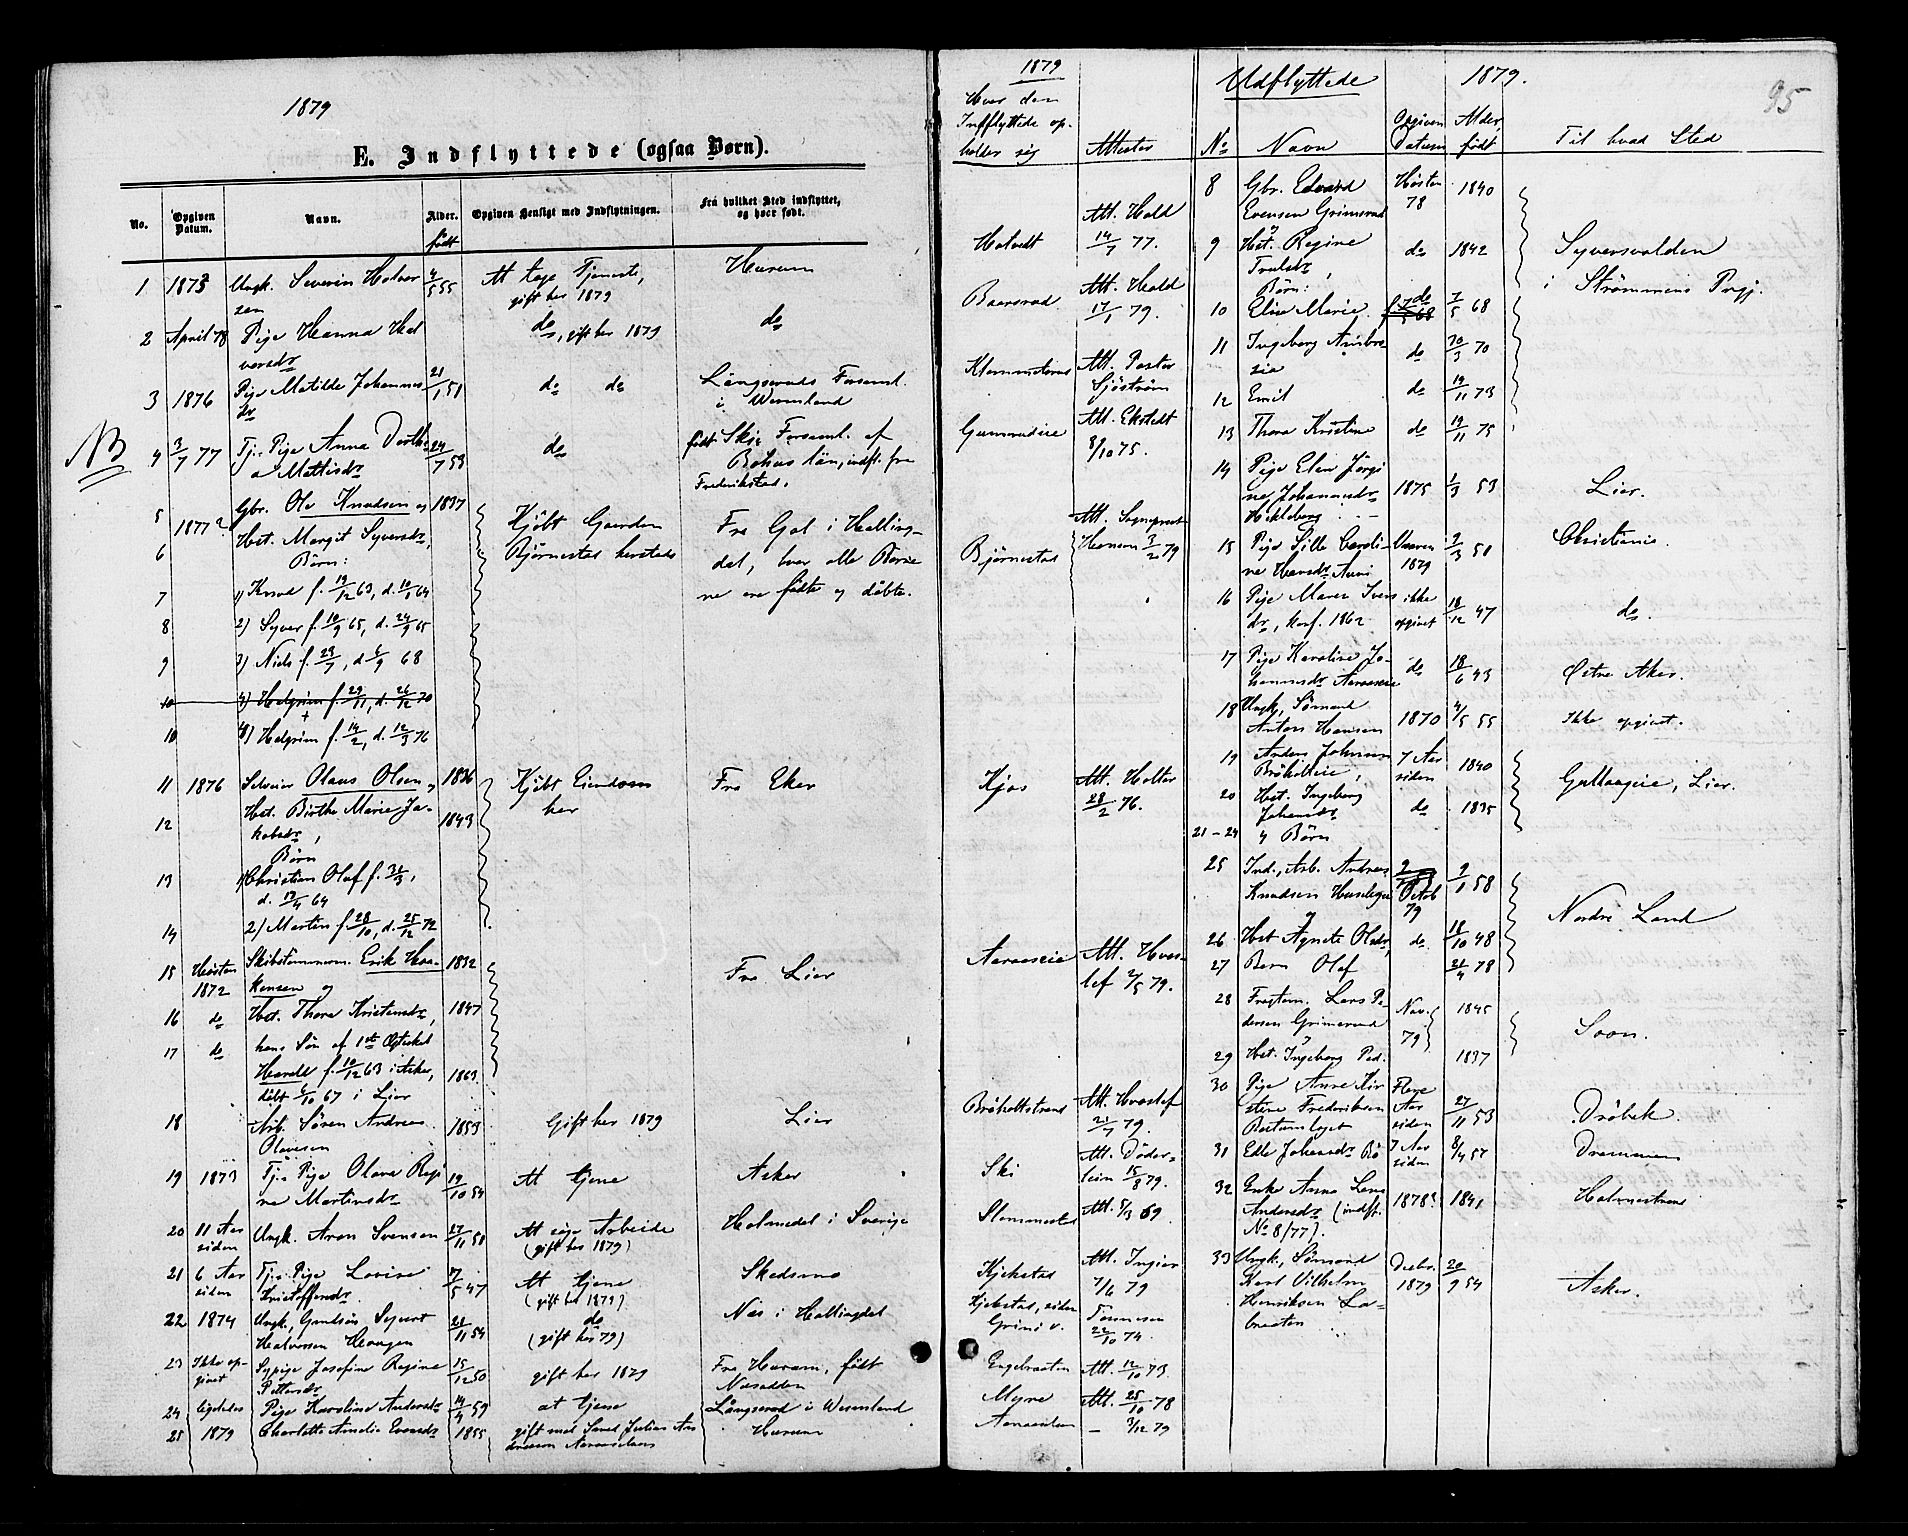 1879
E. Indflyttede (ogsaa Børn).
No. Opgiven Datum. Navn. Alder. født Opgiven Hensigt med Indflytningen. Fra hvilket Sted indflyttet, og hvor født.
1 1873 Ungk. Severin Halvor 4/5 55 At tage Tjeneste, Hurum
sen gift her 1879
2 April 78 Pige Hanna Hal do, gift her 1879 do
vorsdr
3 1876 Pige Matilde Johannes 21/1 51 do do Långseruds Forsaml.
dr i Wermland
NB 4 3/7 77 Tj. Pige Anna Dorthe 24/7 53 do født Skie Forsaml. af
a Mattisdr Bohus län, indfl. fra
Fredrikstad.
5 1877? Gbr. Ole Knudsen og 1837 Kjöbt Gaarden Fra Gol i Halling-
6 Hst. Margit Syversdr, Bjørnestad herstads dal, hvor alle Børne
Børn: ne ere fødte og døbte.
7 1) Knud f. 19/12 63, d. 10/1 64
8 2) Syver f. 10/9 65, d. 24/9 65
9 3) Niels f. 29/7, d 6/9 68
10 4) Helgrim f. 29/11, d. 26/12 70
10 4) Helgrim f. 14/2, d. 12/3 76
11 1876 Seleier Olaus Olsen og 1836 Kjöbt Eiendom Fra Eker
12 Hst. Birthe Marie Ja- 1843 her
kobsdr,
Børn
13 1) Christian Olaf f. 31/3,
d. 17/4 64
14 2) Martin f. 28/10, d. 25/12 72
15 Høsten 1872 Skibstømmerm. Erik Haa- 1832 Fra Lier
kensen og
16 do Hst. Thora Kristensdr, 1847
17 do hans Søn af 1ste Ægteskab
Harald f. 10/12 63 i Asker, 1863
døbt 6/10 67 i Lier
18 Arb. Søren Andreas 1853 Gift her 1879 Lier
Olavesen
19 1873 Tj. Pige Olava Regi 19/10 54 At tjene Asker
ne Martinsdr
20 11 Aar siden Ungk. Aron Svensen 27/11 51 At søge Arbeide Holmedal i Sverige
(gift her 1879)
21 6 Aar siden Tj. Pige Lovise 7/5 47 At tjene Skedsmo
Kristoffersdr. (gift her 1879)
22 1874 Ungk. Gudbr. Syvert 21/11 54 do Næs i Hallingdal
Halvorsen Haugen (gift her 79)
23 Ikke op- givet Sypige Josefine Regine 15/12 50 gift her 1879 Fra Hurum, født
Pettersdr Næsodden
24 ligeledes Pige Karoline Andersdr 14/4 59 at tjene Långserud i Wermland
25 1879 Charlotte Amalie Evensdr 1855 gift med Julius An Hurum
1879
Hvor den
Indflyttede op-
holder sig Attester
Att. Hald
Holvedt 14/7 77.
Att. Hald
Baarsrud 17/1 79.
Klemmetsrud Att. Pastor
Sjöström
Gunnerudeie Att. Ekstedt
8/10 75.
Att. Sognepræst
Bjørnestad Hansen 3/2 79
Kjøs Att. Holter
28/2 76.
Aaraaseie Att. Hvos-
lef 2/5 79.
Brøholtstrand Att. Hvoslef
21/7 79.
Ski Att. Döder-
lein 15/8 79.
Slemmestad Att. 5/3 69
Kjekstad Att. Ingier
7/6 79
Kjekstad, siden Tommesen
Grini v. 22/10 74.
Engebraaten Att. 12/10 73
Myre Att. 25/10 78
— 3/12 79
Udflyttede 1879. 95
No Navn Opgiven Datum Alder, født Til hvad Sted
8 Gbr. Edvard Høsten 78 1840
Evensen Grimsrud
og
9 Hst. Regine do 1842 Syversvolden
Truls dr, i Strømmens Prgj.
Børn:
10 Elise Marie do 7/5 68
11 Ingeborg Ambro do 30/3 70
sia
12 Emil do 19/11 73
13 Thora Kristine do 19/11 75
14 Pige Elen Jørgi 1875 1/3 53 Lier.
ne Johannesdr
Hekleberg
15 Pige Sille Caroli- Vaaren 2/3 51 Christiania.
ne Hansdr 1879
16 Pige Maren Ivers ikke 18/12 47 do.
dr, konf. 1862 opgivet
17 Pige Karoline Jo- do 18/6 43 Østre Aker.
hannesdr Aaraaseie
18 Ungk. Sømand 1870 4/5 55 Ikke opgivet.
Anton Hansen
19 Anders Johnsen 7 Aar 1840 Gullaugeie, Lier.
Brøholteie, siden
20 Hst. Ingeborg do 1835
Johannsdr
21-24 4 Børn
25 Ind., Arb. Andreas 2/1 58
Knudsen Octob 79 Nordre Land
og
26 Hst Agnete Olsdr, do. 18/10 48
27 Barn Olaf 21/4 78
28 Lars Pe- Nov. 79 1845
dersen Grimsrud Soon.
og
29 Hst. Ingeborg Ped. 1837
30 Pige Anne Kir Flere 27/11 53 Drøbak.
stine Fredriksen Aar
siden
31 Edle Johansdr Bö 7 Aar siden 8/4 57 Drammen
32 Enke Anna Lena 1878? 1841 Holmestrand
Andersdr (indfl.
No 8/77).
33 Ungk., Sømand Decbr. 20/9 54 Asker.
Karl Vilhelm 1879
Henriksen La-
braaten